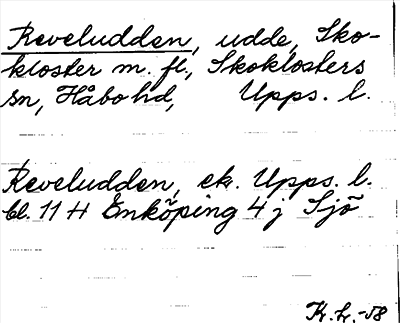 Reveludden, udde, Sko-
kloster m. fl., Skoklosters
sn, Håbo hd, Upps. l.
Reveludden, ek. Upps. l.
bl. 11 H Enköping 4 j Sjö
K. L. -58